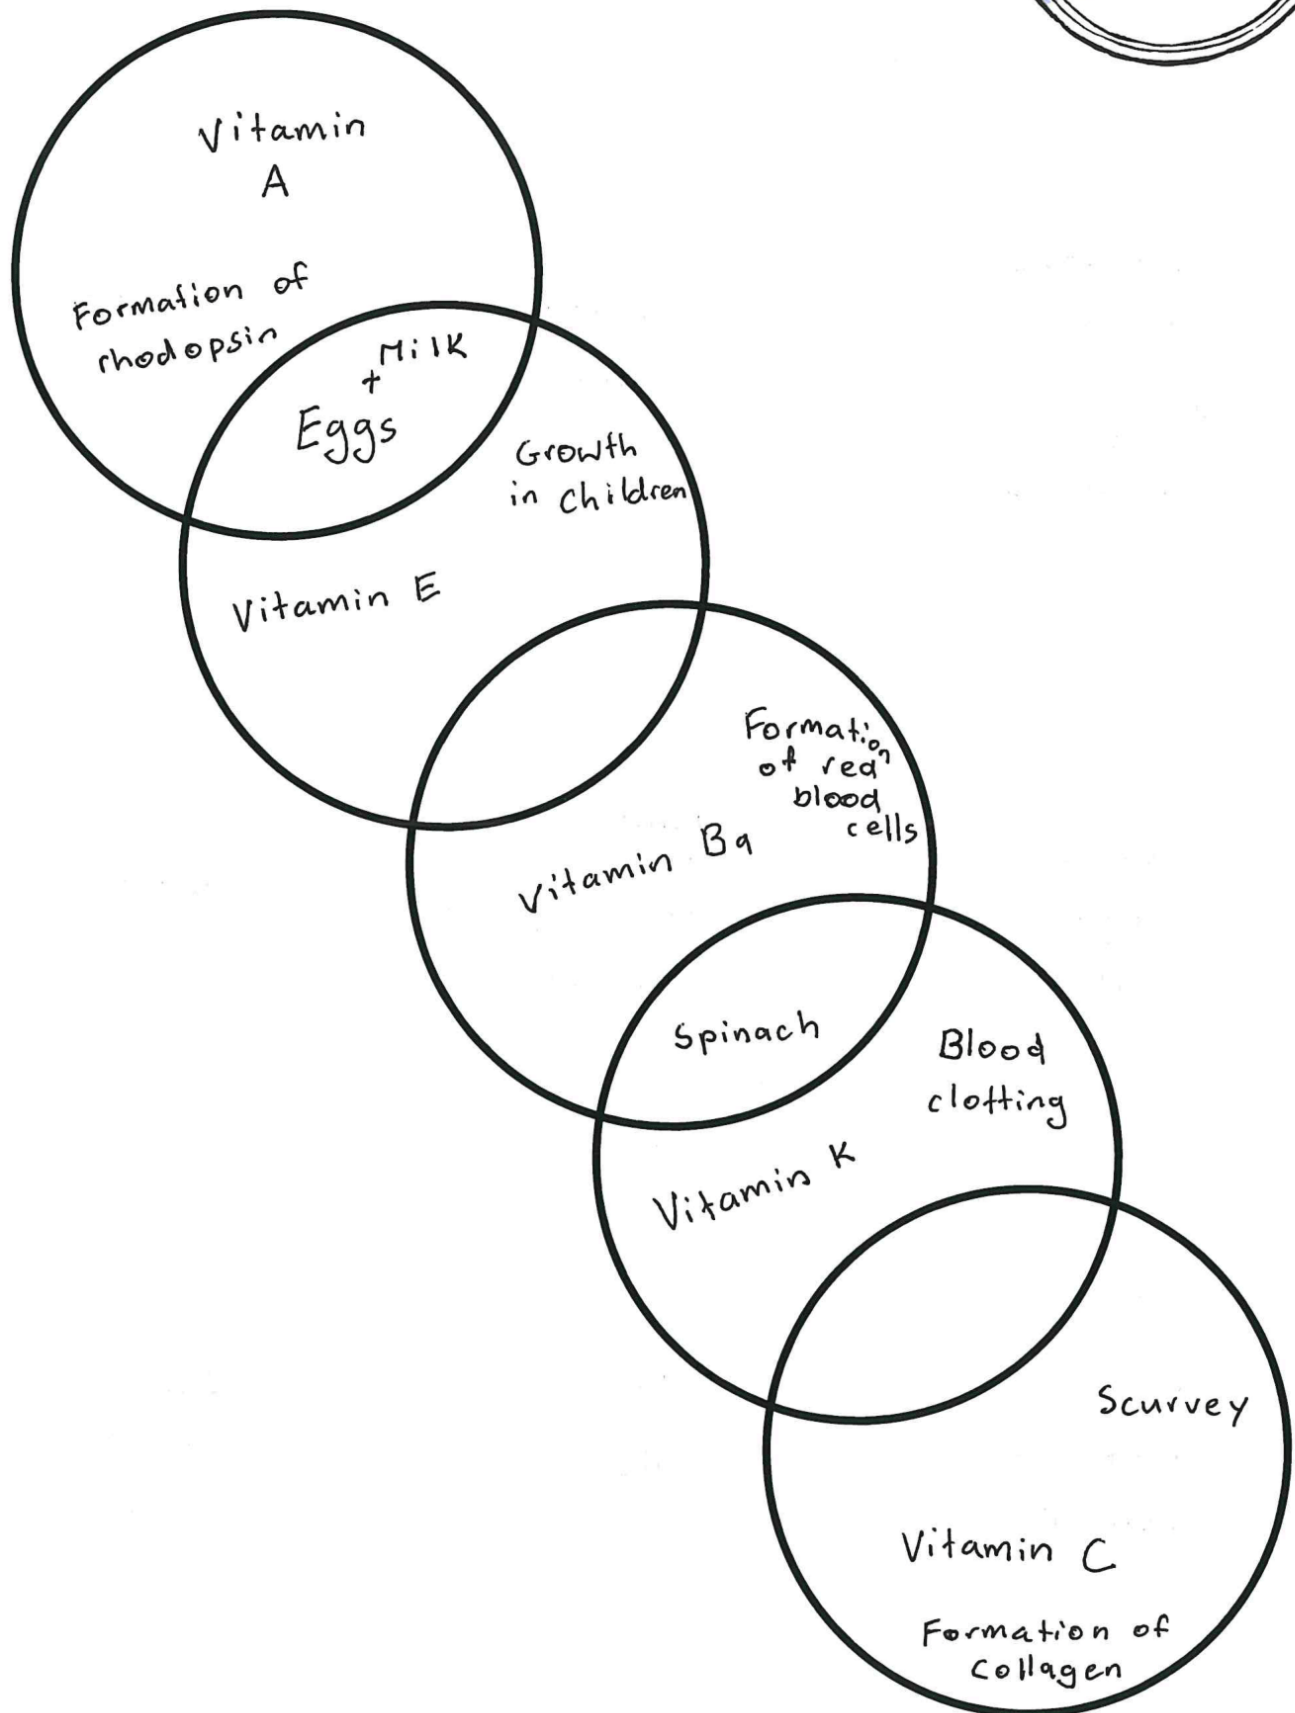 Vitamin
A
Formation of
rhodopsin
Milk
+
Eggs
Growth
in children
Vitamin E
Formation
of red
blood
cells
Vitamin B9
Spinach
Blood
clotting
Vitamin K
Scurvey
Vitamin C
Formation of
Collagen